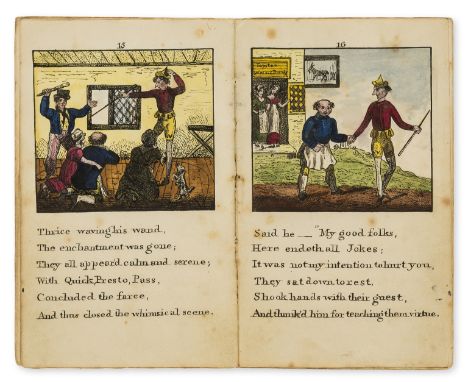 15
Thrice waving his wand,
The enchantment was gone;
They all appeard calm and serene;
With Quick, Presto, Pass,
Concluded the farce,
And thus closed the whimsical scene.
16
Said he — "My good folks,
Here endeth all Jokes;
It was not my intention to hurt you,
They sat down to rest,
Shook hands with their guest,
And thank'd him for teaching them virtue.